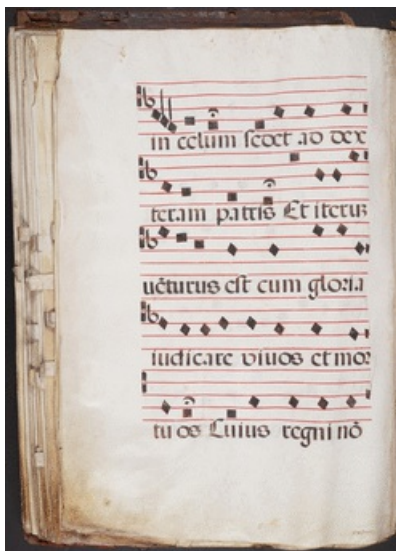 in celum sedet ad dex
teram patris Et iterum
uēturus est cum gloria
iudicare viuos et mor
tuos Cuius regni nō